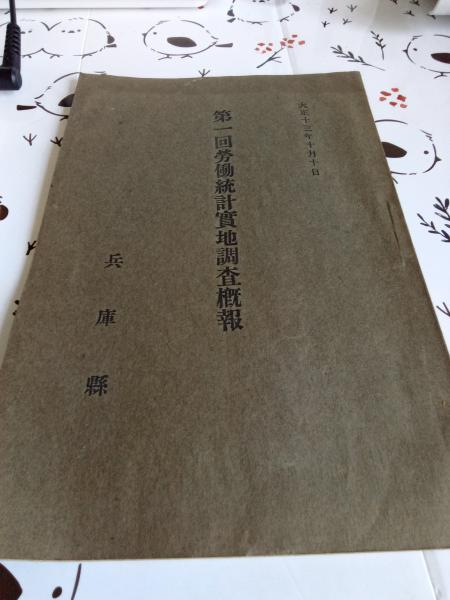 大正十三年十月十日
第一回勞働統計實地調査概報
兵庫縣